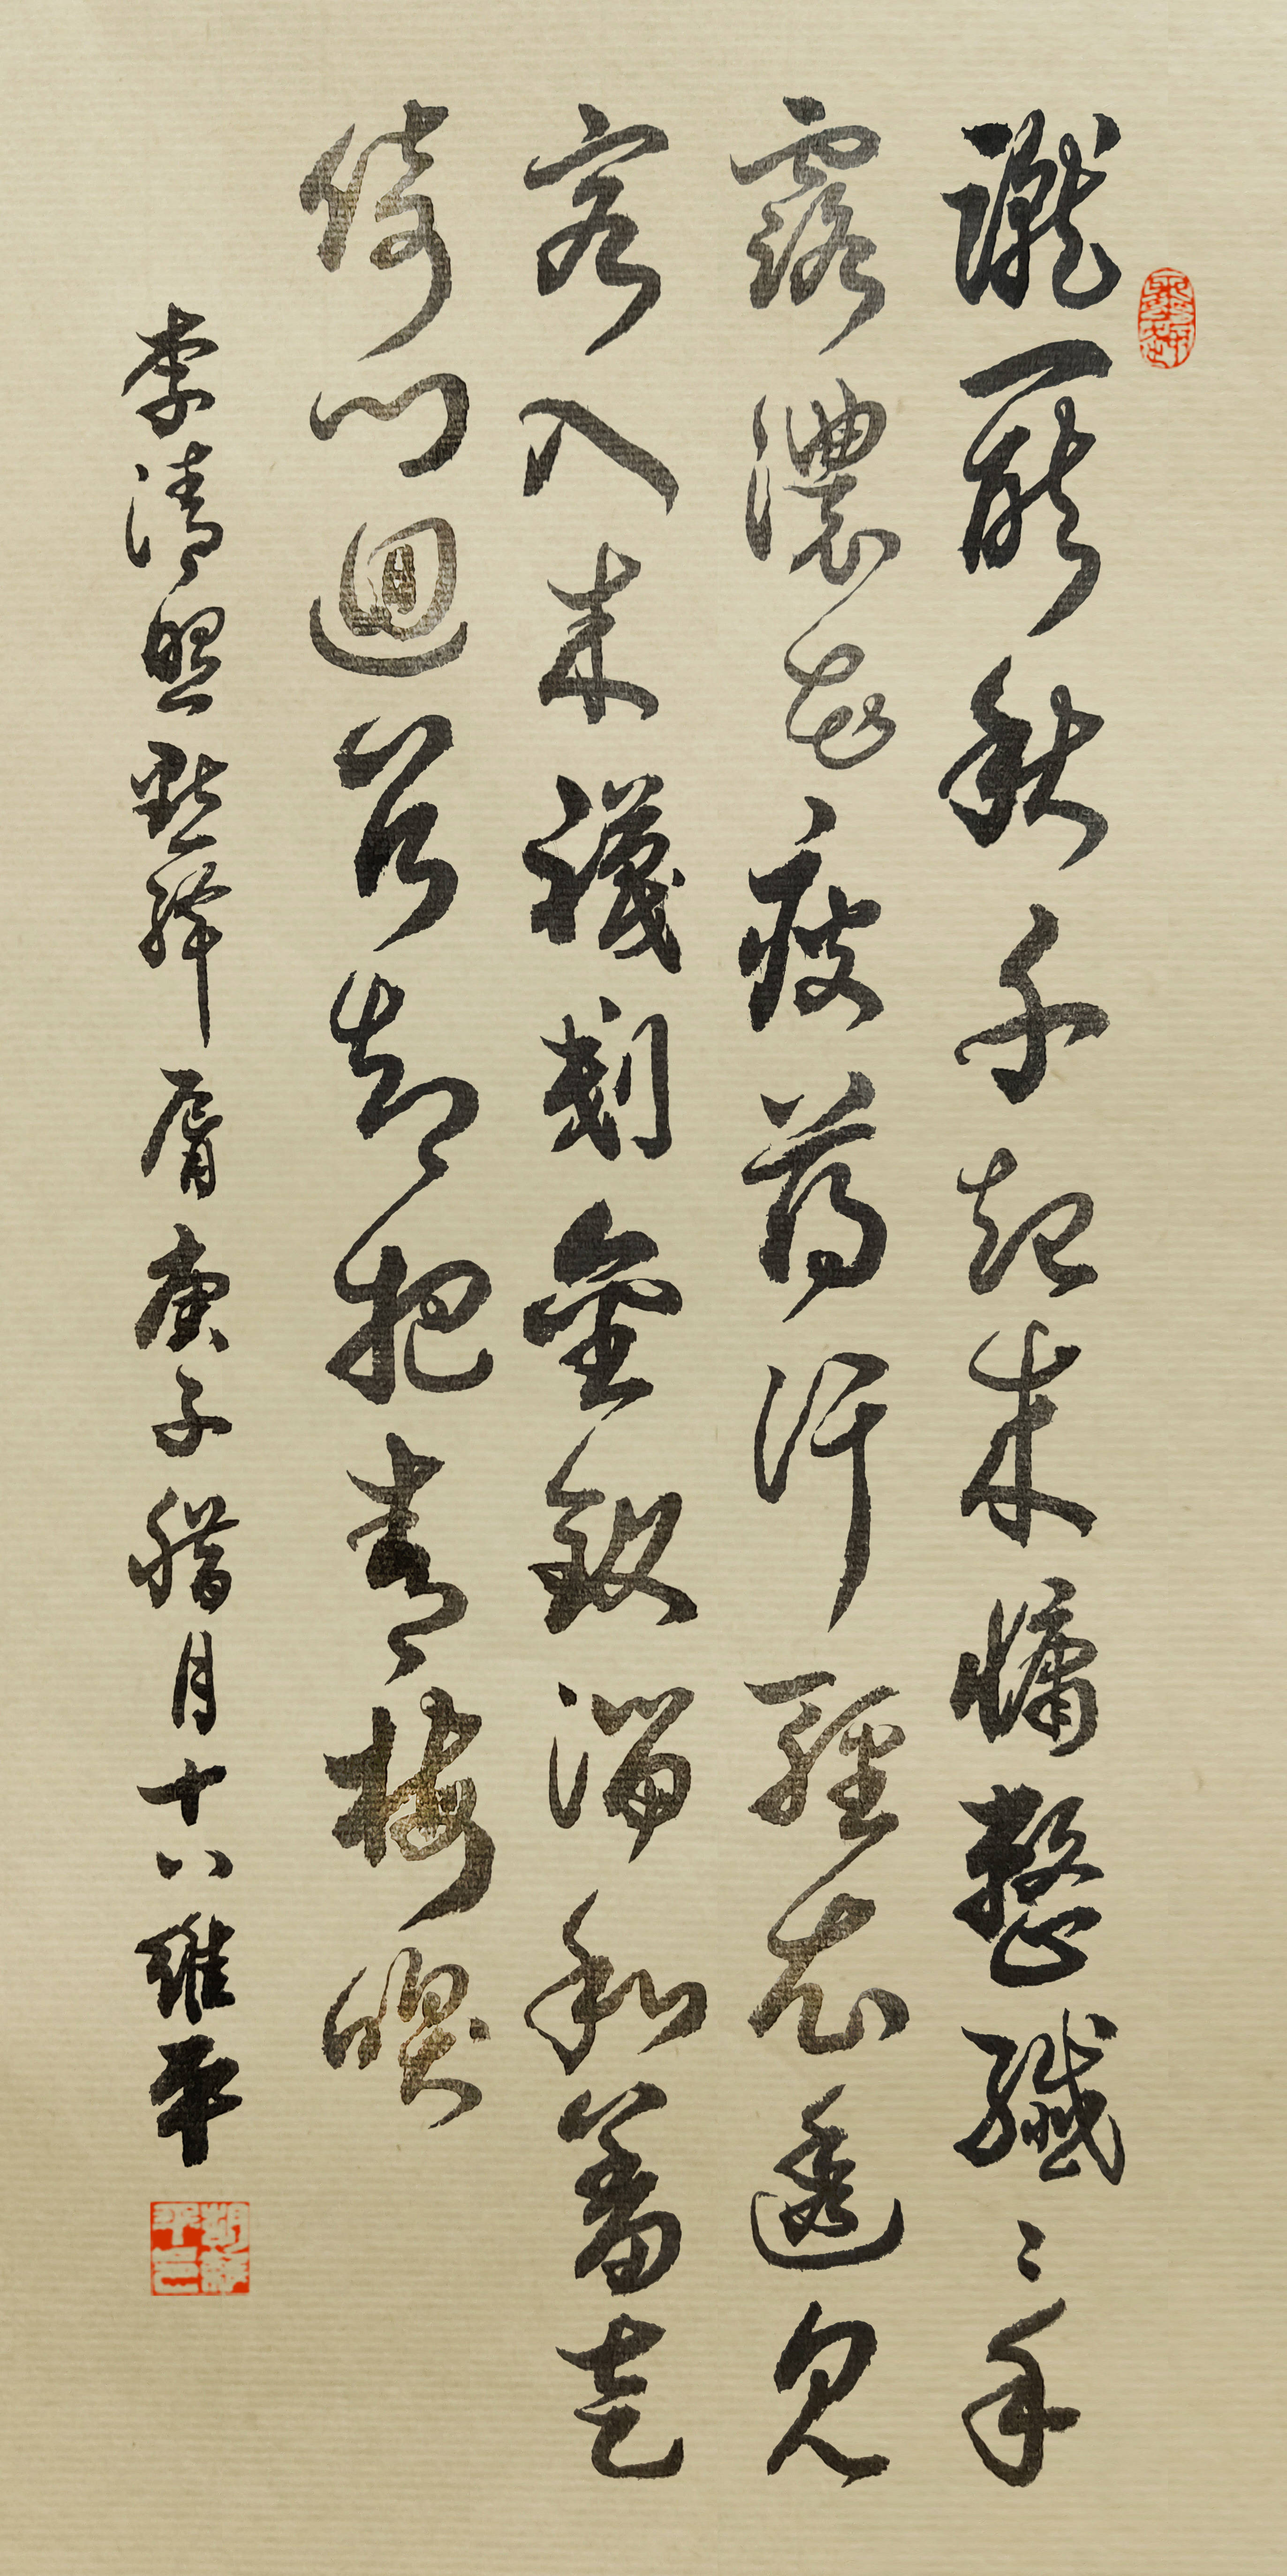 蹴罷秋千起來慵整纖〻手
露濃花瘦薄汗輕衣透見
客入來襪剗金釵溜和羞走
倚門迴首却把青梅嗅
李清照點絳脣庚子腊月十八維平
胡維平印